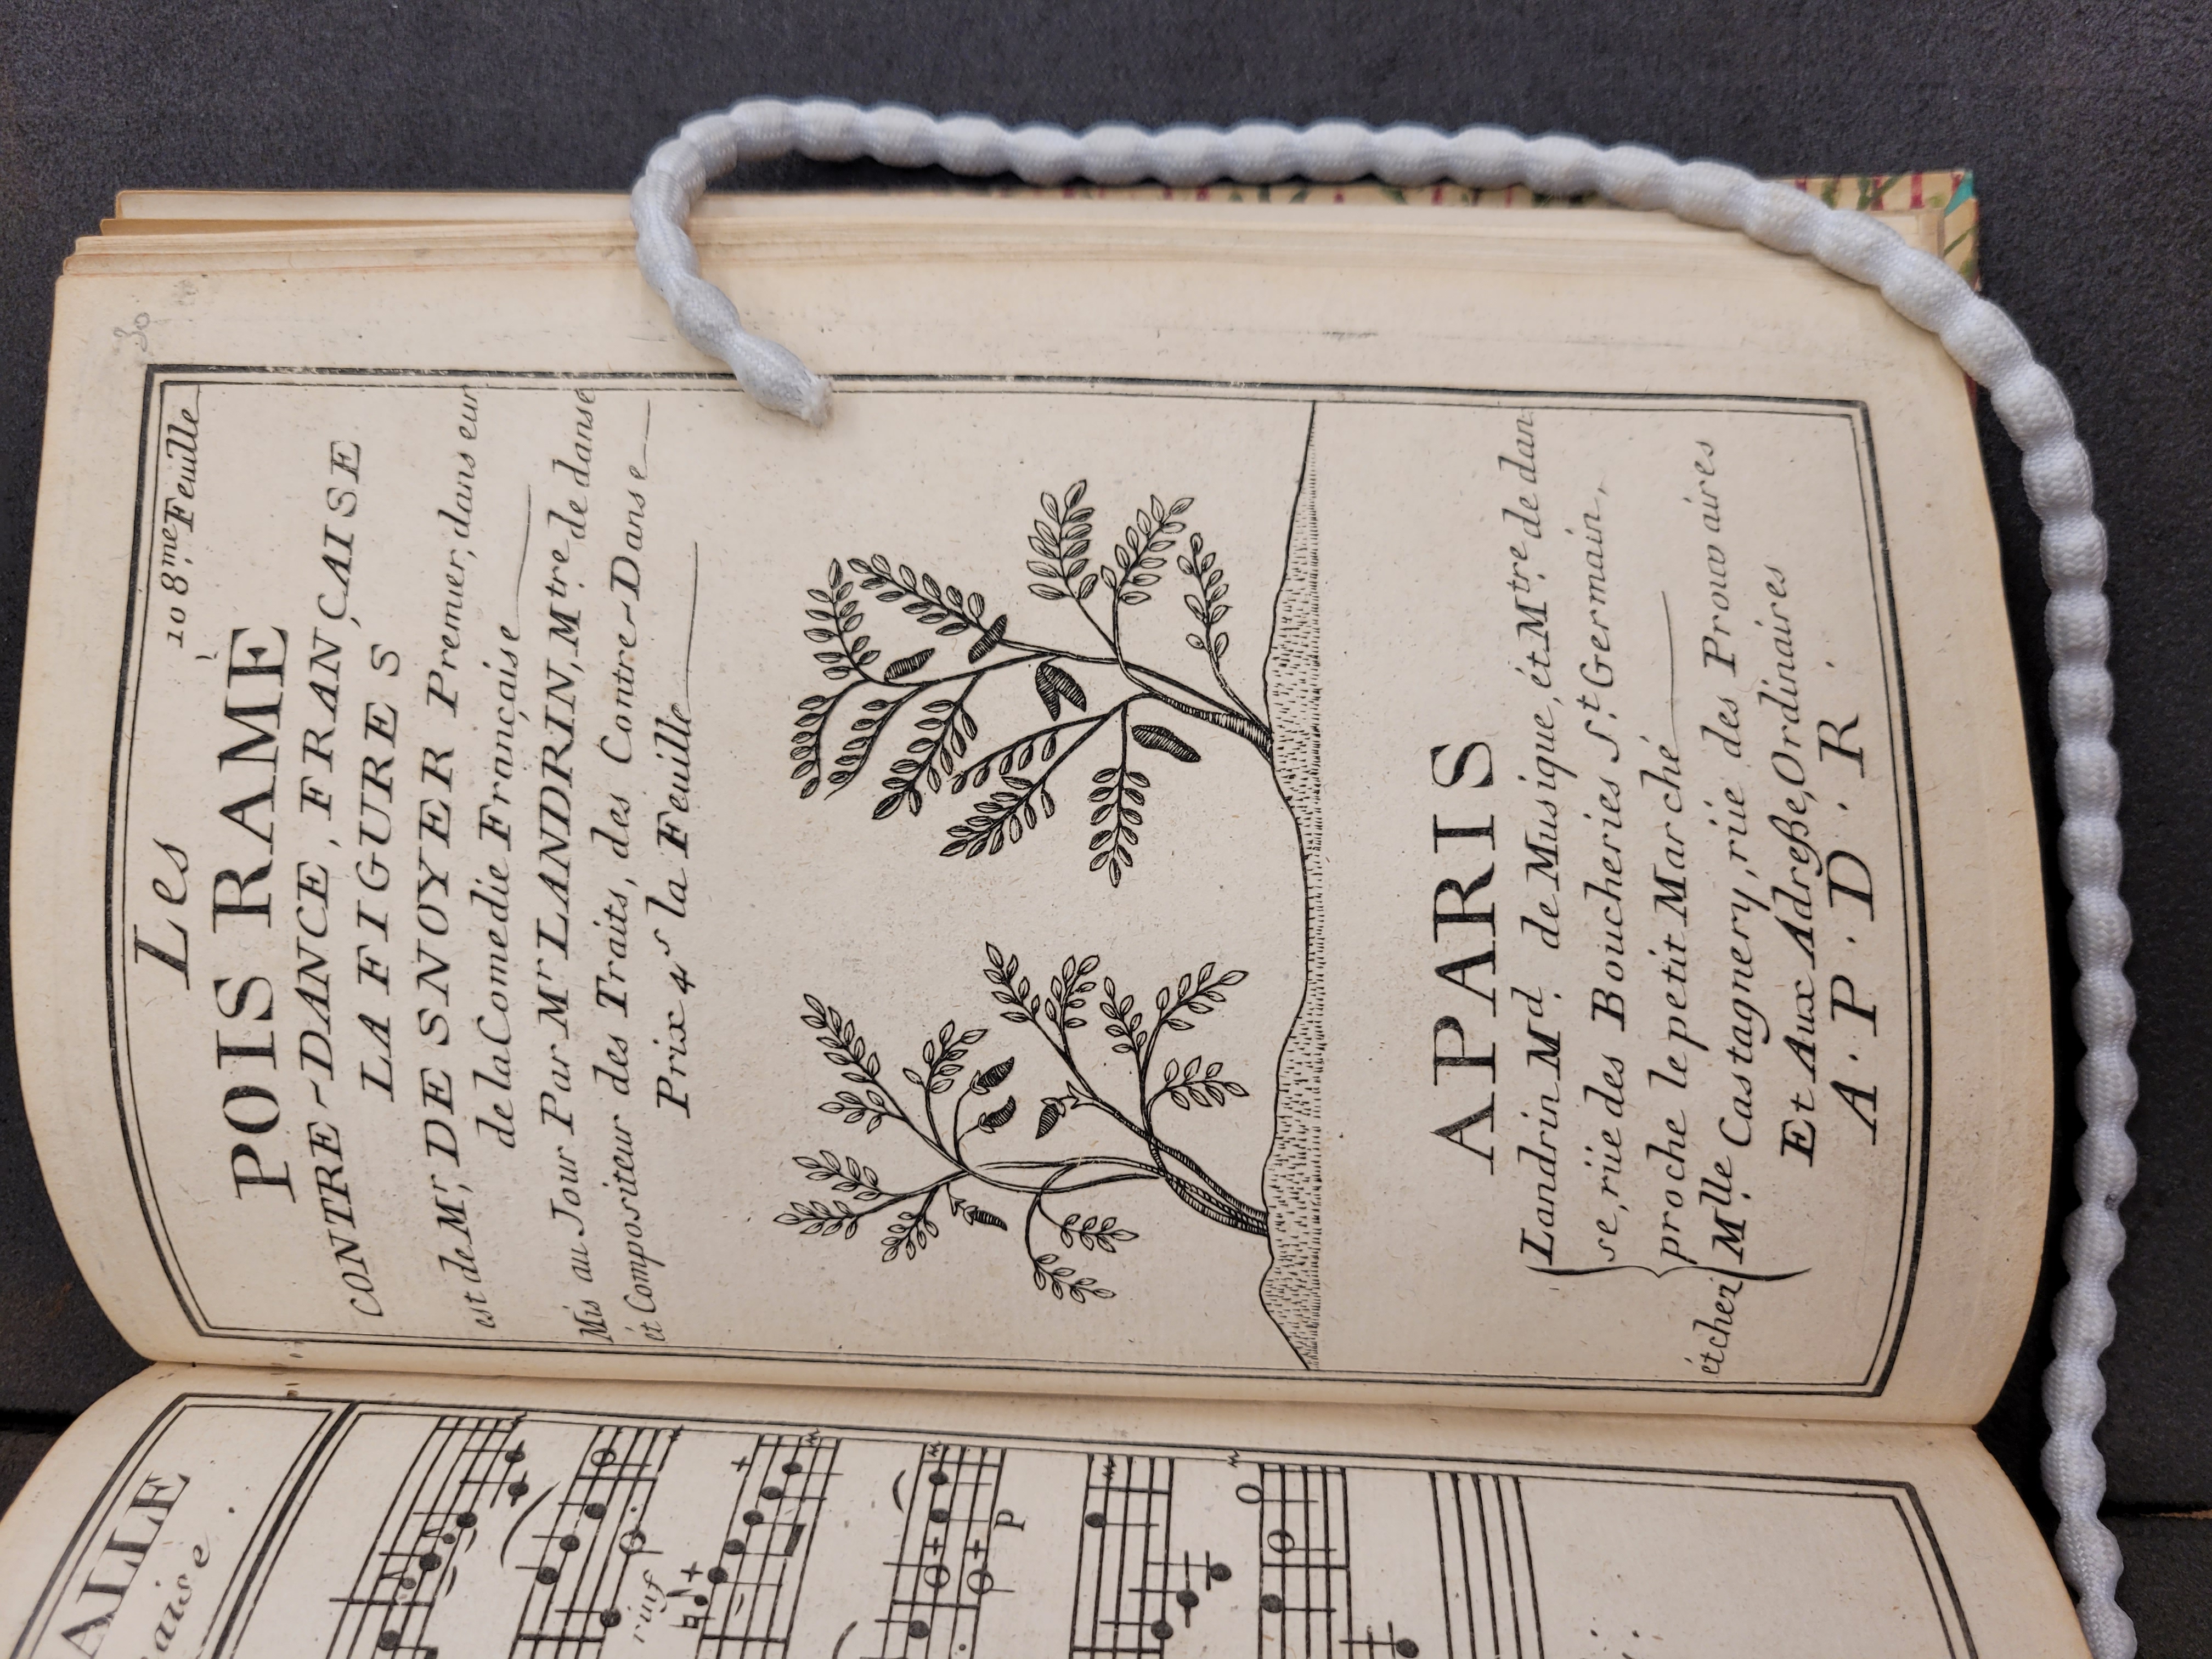 30
108.me Feuille
Les
POIS RAME
CONTRE-DANCE, FRANÇAISE
LA FIGURE S
est de Mr, DE SNOYER Premier, dans eur
de la Comedie Française
Mis au Jour Par Mr LANDRIN, Mtre de danse
ét Compositeur des Traits, des Contre-Danse
Prix 4s la Feuille
APARIS
Landrin Md. de Musique, ét Mtre de dan
se, rüe des Boucheries St. Germain,
proche le petit Marché
ét chez Mlle Castagnery, rüe des Prouvaires
Et Aux Adreße, Ordinaires
A. P. D. R.
AILLE
aise.
rinf
P